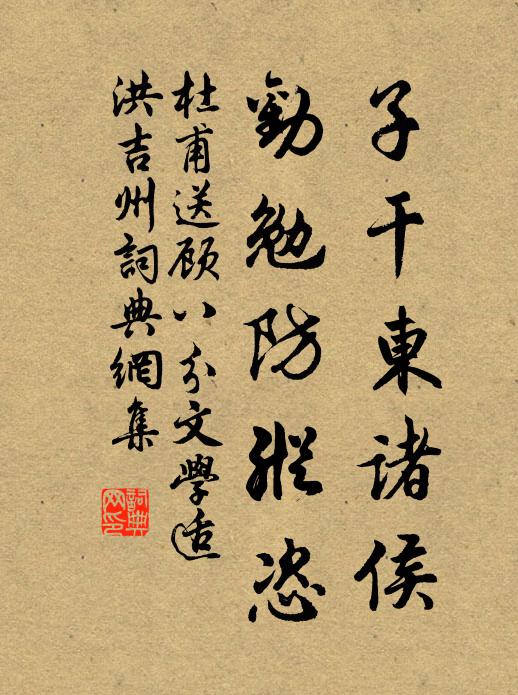 子干東諸侯
勸勉防縱恣
杜甫送顾八分文學适
洪吉州詞典網集
詞典網印